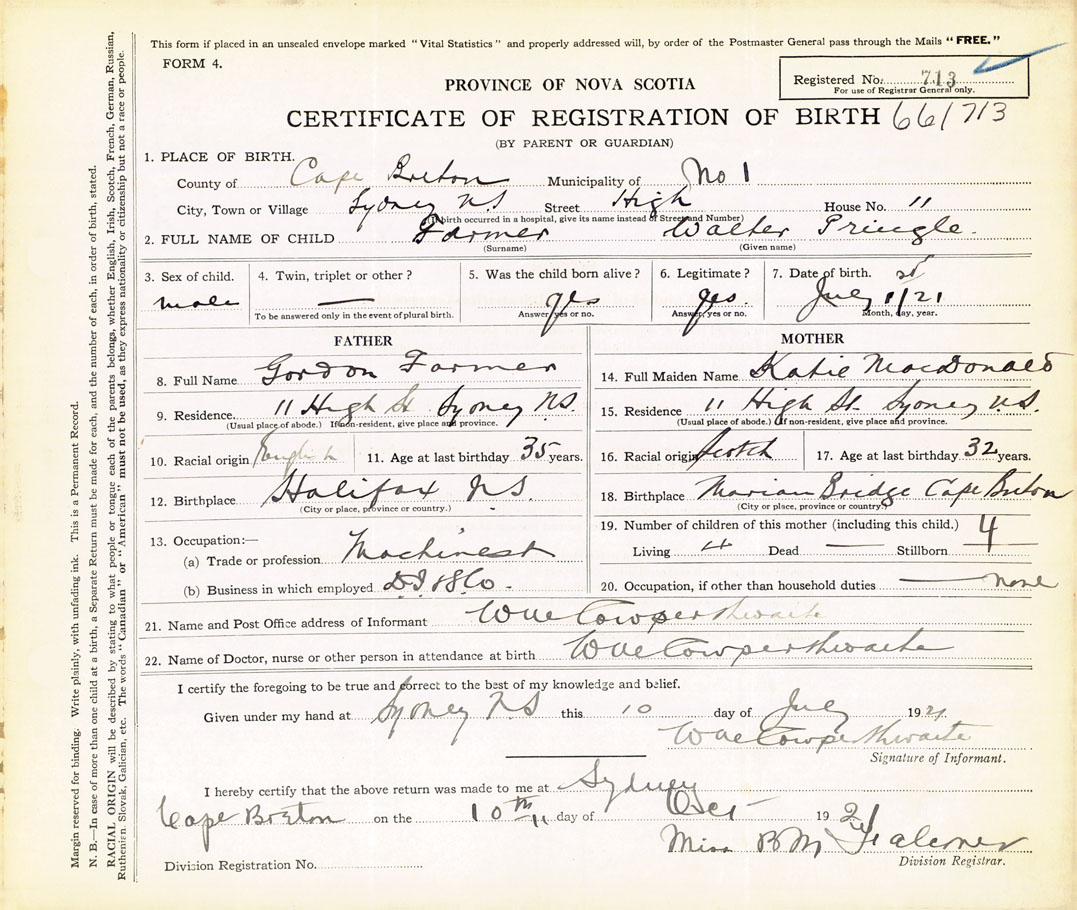 This form if placed in an unsealed envelope marked "Vital Statistics" and properly addressed will, by order of the Postmaster General pass through the Mails "FREE."
FORM 4.
Registered No. 713
For use of Registrar General only.
PROVINCE OF NOVA SCOTIA
CERTIFICATE OF REGISTRATION OF BIRTH 66/713
(BY PARENT OR GUARDIAN)
1. PLACE OF BIRTH.
County of Cape Breton Municipality of No 1
City, Town or Village Sydney N.S Street High House No. 11
(If birth occurred in a hospital, give its name instead of Street and Number)
2. FULL NAME OF CHILD Farmer Walter Pringle.
(Surname) (Given name)
3. Sex of child. 4. Twin, triplet or other? 5. Was the child born alive? 6. Legitimate? 7. Date of birth.
male yes yes. July 1/21
To be answered only in the event of plural birth. Answer yes or no. Answer, yes or no. Month, day, year.
FATHER
8. Full Name Gordon Farmer
9. Residence. 11 High St Sydney N.S.
(Usual place of abode.) If non-resident, give place and province.
10. Racial origin English 11. Age at last birthday 35 years.
12. Birthplace Halifax N.S.
(City or place, province or country.)
13. Occupation:—
(a) Trade or profession Machinest
(b) Business in which employed D.I.&S.Co.
MOTHER
14. Full Maiden Name Katie MacDonald
15. Residence 11 High St. Sydney N.S.
(Usual place of abode.) If non-resident, give place and province.
16. Racial origin Scotch 17. Age at last birthday 32 years.
18. Birthplace Marian Bridge Cape Breton
(City or place, province or country.)
19. Number of children of this mother (including this child.) 4
Living 4 Dead — Stillborn —
20. Occupation, if other than household duties none
21. Name and Post Office address of Informant Cowperthwaite
22. Name of Doctor, nurse or other person in attendance at birth Cowperthwaite
I certify the foregoing to be true and correct to the best of my knowledge and belief.
Given under my hand at Sydney N.S this 10 day of July 1921.
Cowperthwaite
Signature of Informant.
I hereby certify that the above return was made to me at Sydney
Cape Breton on the 10th day of Oct 1921
Miss B M Falconer
Division Registrar.
Division Registration No.
Margin reserved for binding. Write plainly, with unfading ink. This is a Permanent Record.
N. B.—In case of more than one child at a birth, a Separate Return must be made for each, and the number of each, in order of birth, stated.
RACIAL ORIGIN will be described by stating to what people or tongue each of the parents belongs, whether English, Irish, Scotch, French, German, Russian,
Ruthenian, Slovak, Galician, etc. The words "Canadian" or "American" must not be used, as they express nationality or citizenship but not a race or people.